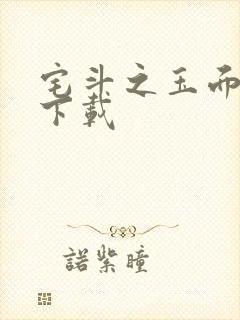 宅斗之玉而
下載
諾紫瞳